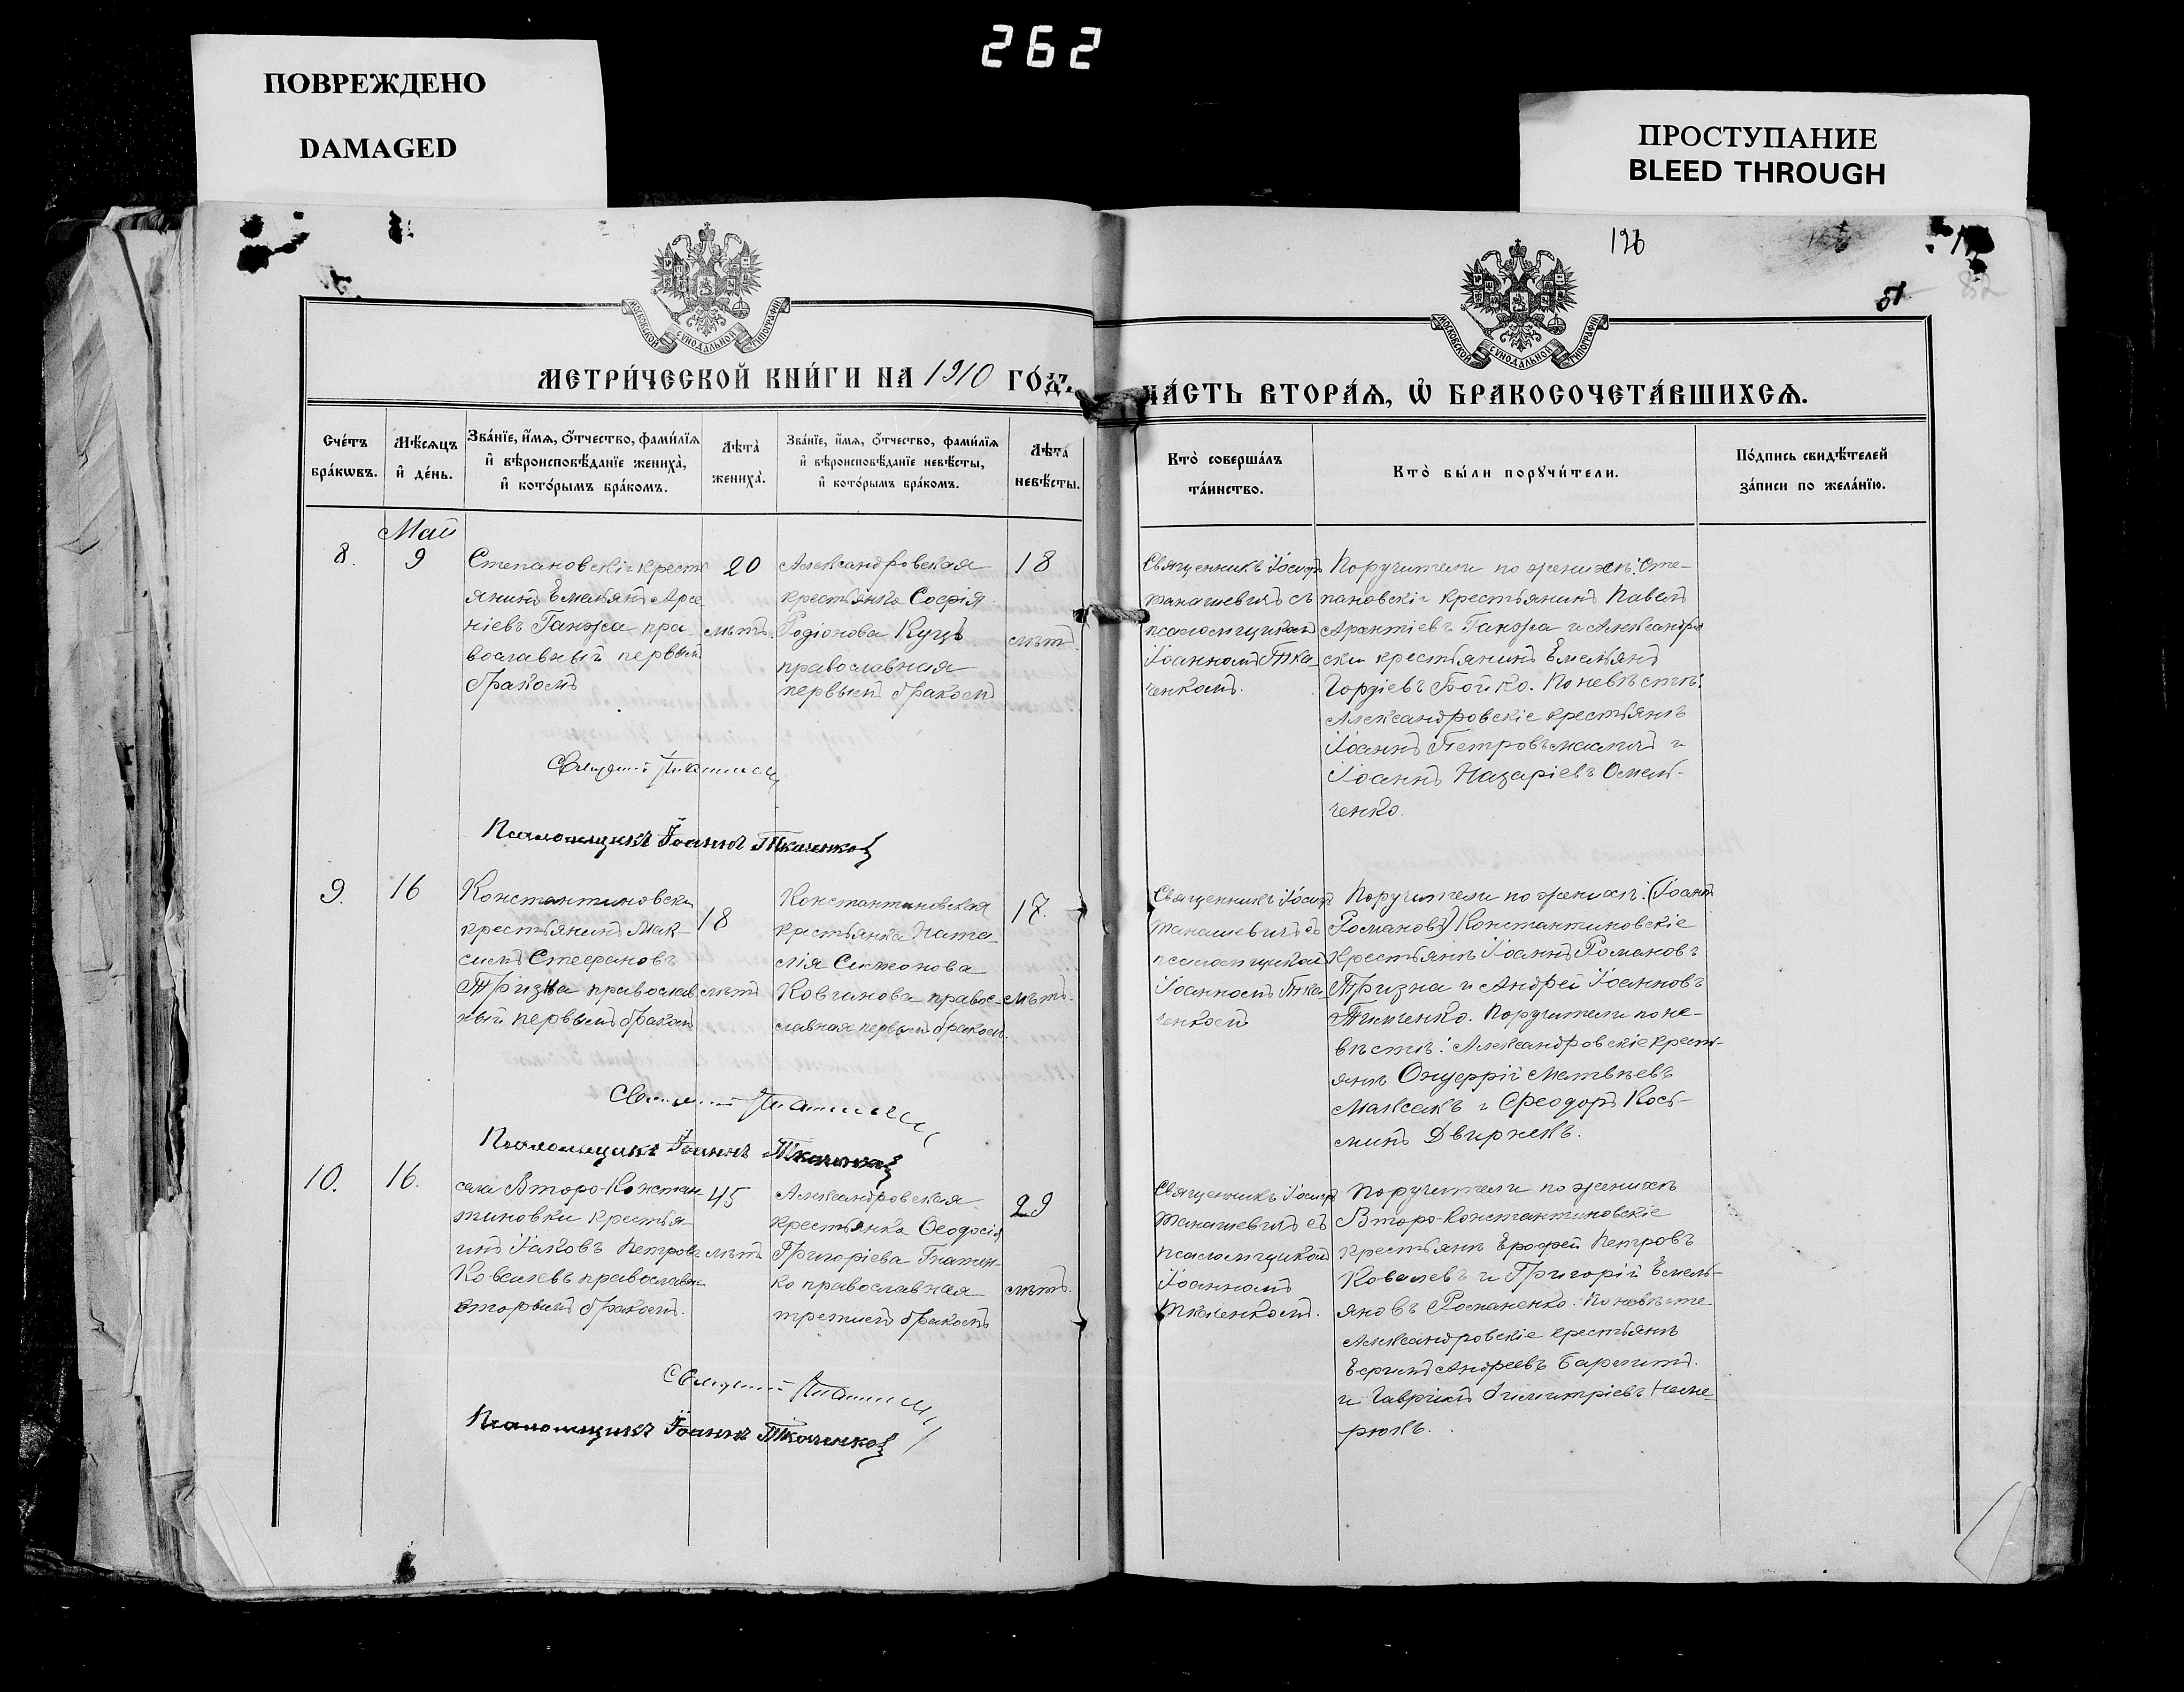 262
ПОВРЕЖДЕНО
DAMAGED
ПРОСТУПАНИЕ
BLEED THROUGH
126
51
82
МОСКОВСКОЙ СѴНОДАЛЬНОЙ ТИПОГРАФІИ
МОСКОВСКОЙ СѴНОДАЛЬНОЙ ТИПОГРАФІИ
МЕТРИ́ЧЕСКОЙ КНИ́ГИ НА 1910 ГО́ДЪ,
ЧА́СТЬ ВТОРА́Ѧ, Ѡ҆ БРАКОСОЧЕТА́ВШИХСѦ.
Сче́тъ
бра́кѡвъ.
Мѣ́сѧцъ
и҆ де́нь.
Зва́нїе, и҆́мѧ, ѻ҆́тчество, фами́лїѧ
и҆ вѣроисповѣ́данїе жениха̀,
и҆ кото́рымъ бра́комъ.
Лѣ́та̀
жениха̀.
Зва́нїе, и҆́мѧ, ѻ҆́тчество, фами́лїѧ
и҆ вѣроисповѣ́данїе невѣ́сты,
и҆ кото́рымъ бра́комъ.
Лѣ́та̀
невѣ́сты.
Кто̀ соверша́лъ
та́инство.
Кто̀ бы́ли порꙋчи́тели.
По́дпись свидѣ́телей
за́писи по жела́нїю.
Май
8.
9
Степановскій крестьянинъ
Емельянъ Арсе
ніевъ Ганжа пра
вославный первымъ
бракомъ
20
лѣтъ.
Александровская
крестьянка Софія
Родіонова Куцъ
православная
первымъ бракомъ
18
лѣтъ.
Священникъ Іосифъ
Танашевичъ съ
псаломщикомъ
Іоанномъ Тка
ченкомъ.
Поручители по женихѣ: Сте-
пановскій крестьянинъ Павелъ
Ганжа и Александров
скій крестьянинъ Емельянъ
Гордіевъ Бойко. По невѣстѣ:
Александровскіе крестьяне
Іоаннъ Петровъ и
Іоаннъ Назаріевъ Омель-
ченко.
Псаломщикъ Іоаннъ Ткаченко
9.
16
Константиновскій
крестьянинъ Мак-
симъ Стефановъ
Тризна православ
ный первымъ бракомъ
18
лѣтъ
Константиновская
крестьянка Ната-
лія Симонова
Ковганова правос-
славная первымъ бракомъ.
17.
лѣтъ.
Священникъ Іосифъ
Танашевичъ съ
псаломщикомъ
Іоанномъ Тка
ченкомъ
Поручители по женихѣ: (Іоаннъ
Романовъ) Константиновскіе
крестьяне Іоаннъ Романовъ
Тризна и Андрей Іоанновъ
Тимченко. Поручители по не-
вѣстѣ: Александровскіе кресть-
яне Онуфрій Матвѣевъ
Максакъ и Ѳеодоръ Кось-
минъ Двирнекъ.
Псаломщикъ Іоаннъ Ткаченко
10.
16.
села Второ-Констан-
тиновки крестья
инъ Іаковъ Петровъ
Ковалевъ православн
вторымъ бракомъ.
45
лѣтъ
Александровская
крестьянка Ѳеодосія
Григоріева Гнатен-
ко православная
третимъ бракомъ
29
лѣтъ.
Священникъ Іосифъ
Танашевичъ съ
псаломщикомъ
Іоанномъ
Ткаченкомъ.
Поручители по женихѣ
Второ-Константиновскіе
крестьяне Ерофей Петровъ
Ковалевъ и Григорій Емель-
яновъ Романенко. По невѣсте
Александровскіе крестьяне
Андреевъ
и Гавріилъ Димитріевъ Неме-
рюкъ.
Псаломщикъ Іоаннъ Ткаченко